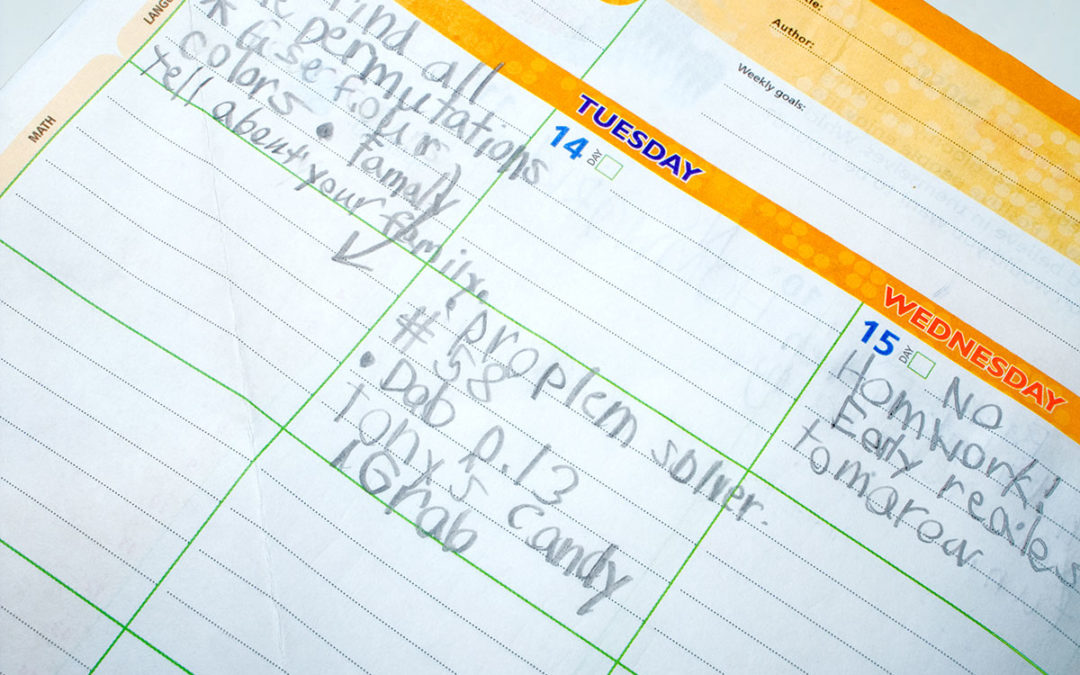 LANGU
MATH
find all
permutations
* Use four
colors • family
tell about your family.
problem solver.
# 58
• Dab p.13
Tonys candy
Grab
TUESDAY
14 DAY
Author:
Weekly goals:
WEDNESDAY
15 DAY
No
Homwork!
Early
tomarow